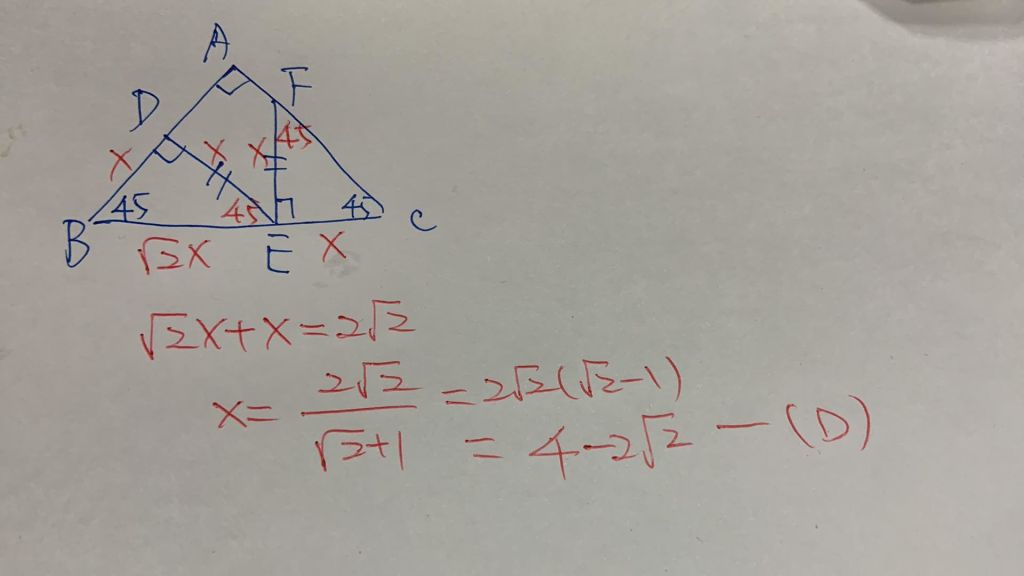 A
F
D
45
x
x
x
45
45
45
B
E
C
√2x
x
√2x+x=2√2
x= 2√2/(√2+1) =2√2(√2-1)
= 4-2√2 — (D)